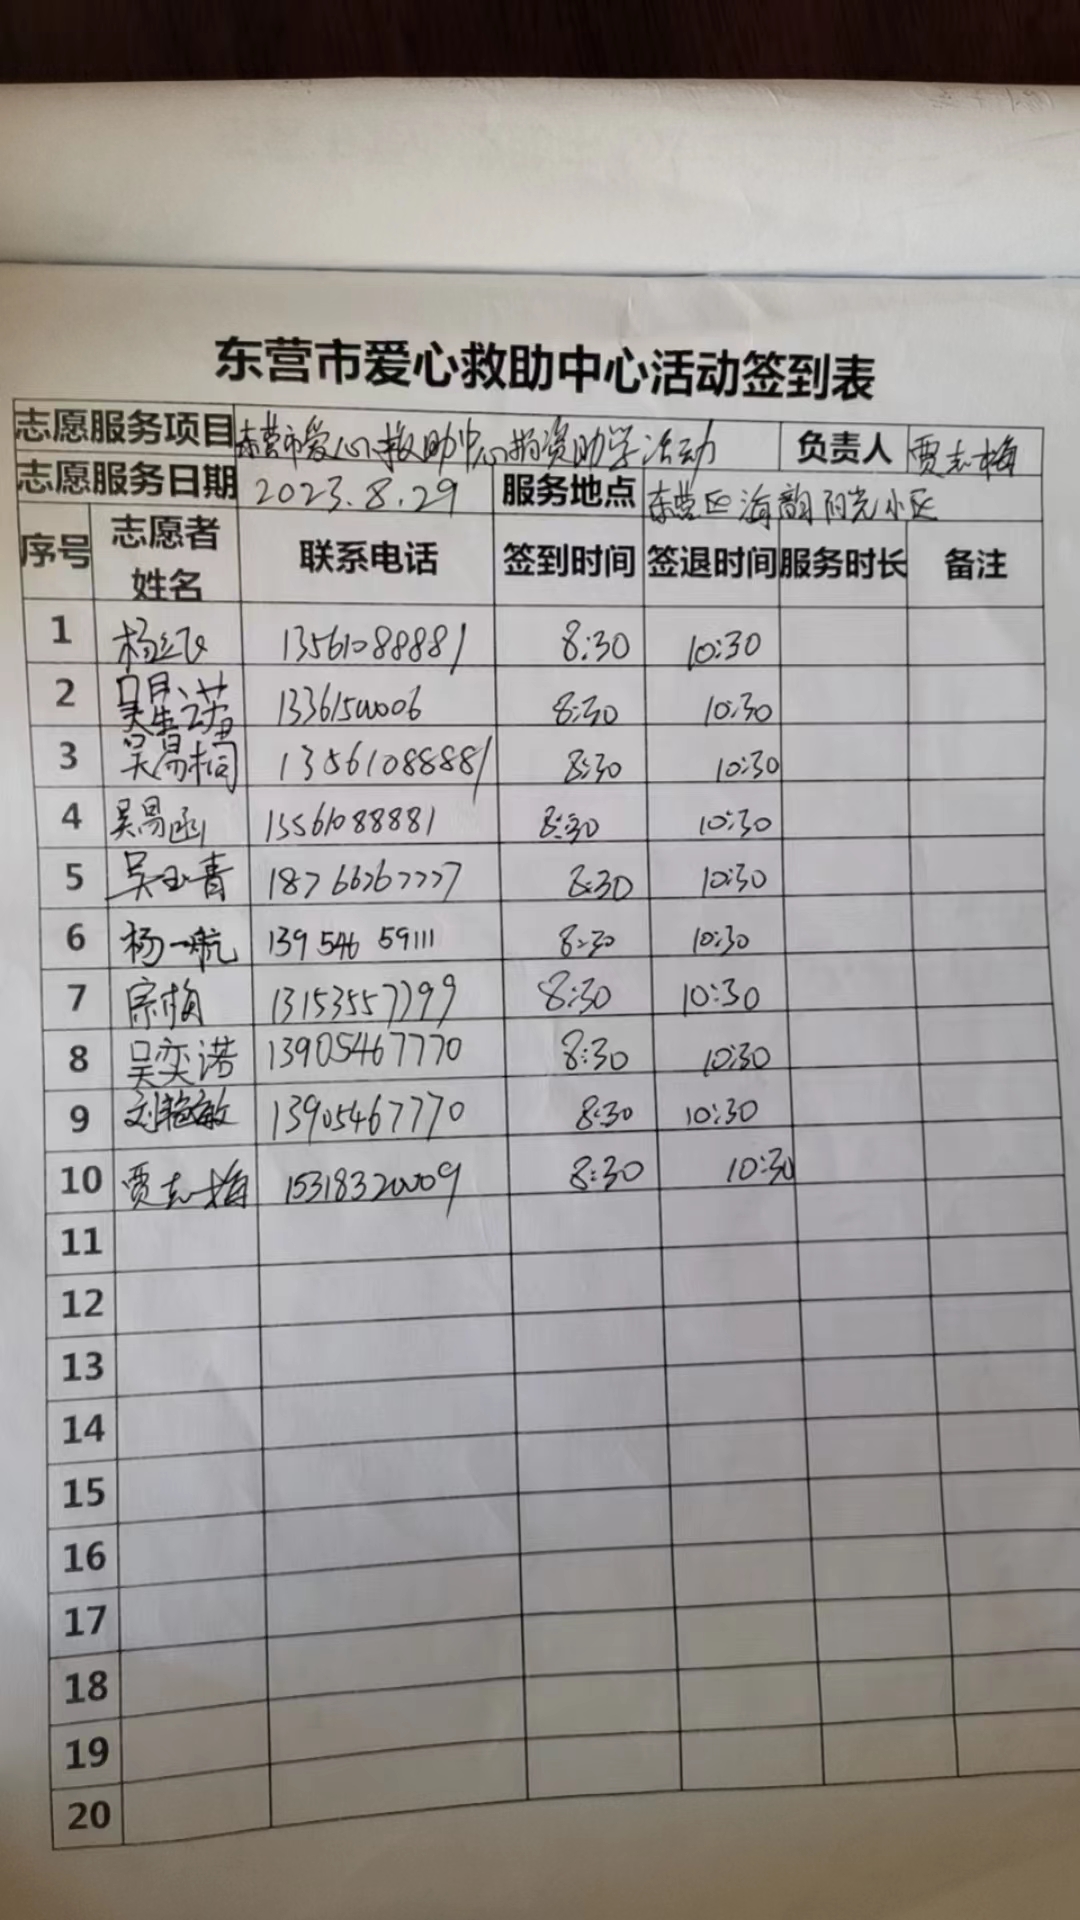 东营市爱心救助中心活动签到表
志愿服务项目 东营市爱心救助中心捐资助学活动 负责人 贾志梅
志愿服务日期 2023.8.29 服务地点 东营区海韵阳光小区
序号 志愿者姓名 联系电话 签到时间 签退时间 服务时长 备注
1 杨红 13561088881 8:30 10:30
2 13361500006 8:30 10:30
3 吴易桐 13561088881 8:30 10:30
4 吴易函 13561088881 8:30 10:30
5 吴玉青 18766267227 8:30 10:30
6 杨一航 139 546 59111 8:30 10:30
7 宗梅 13153557799 8:30 10:30
8 吴奕诺 13905467770 8:30 10:30
9 刘艳敏 13905467770 8:30 10:30
10 贾志梅 15318320009 8:30 10:30
11
12
13
14
15
16
17
18
19
20